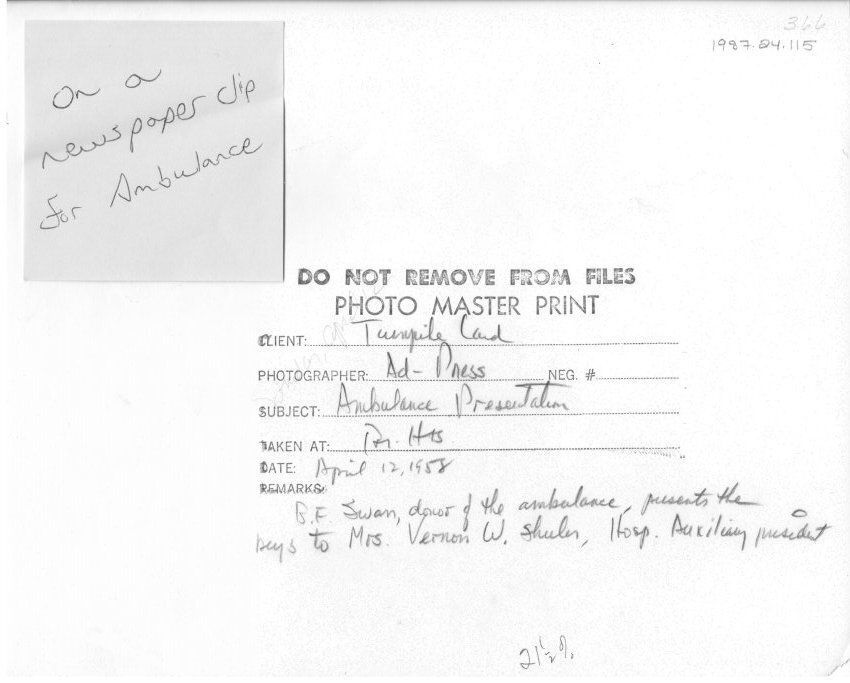 366
1987.24.115
On a
newspaper clip
for Ambulance
DO NOT REMOVE FROM FILES
PHOTO MASTER PRINT
CLIENT: Turnpike Land
PHOTOGRAPHER: Ad-Press NEG. #
SUBJECT: Ambulance Presentation
TAKEN AT:
DATE: April 12, 1958
REMARKS:
B.F. Swan, donor of the ambulance, presents the
keys to Mrs. Vernon W. Shuler, Hosp. Auxiliary president
21½%